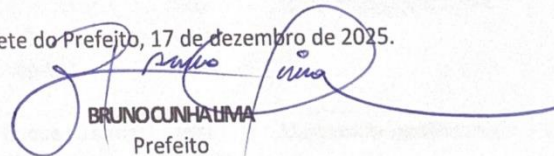 ete do Prefeito, 17 de dezembro de 2025.
BRUNO CUNHA LIMA
Prefeito